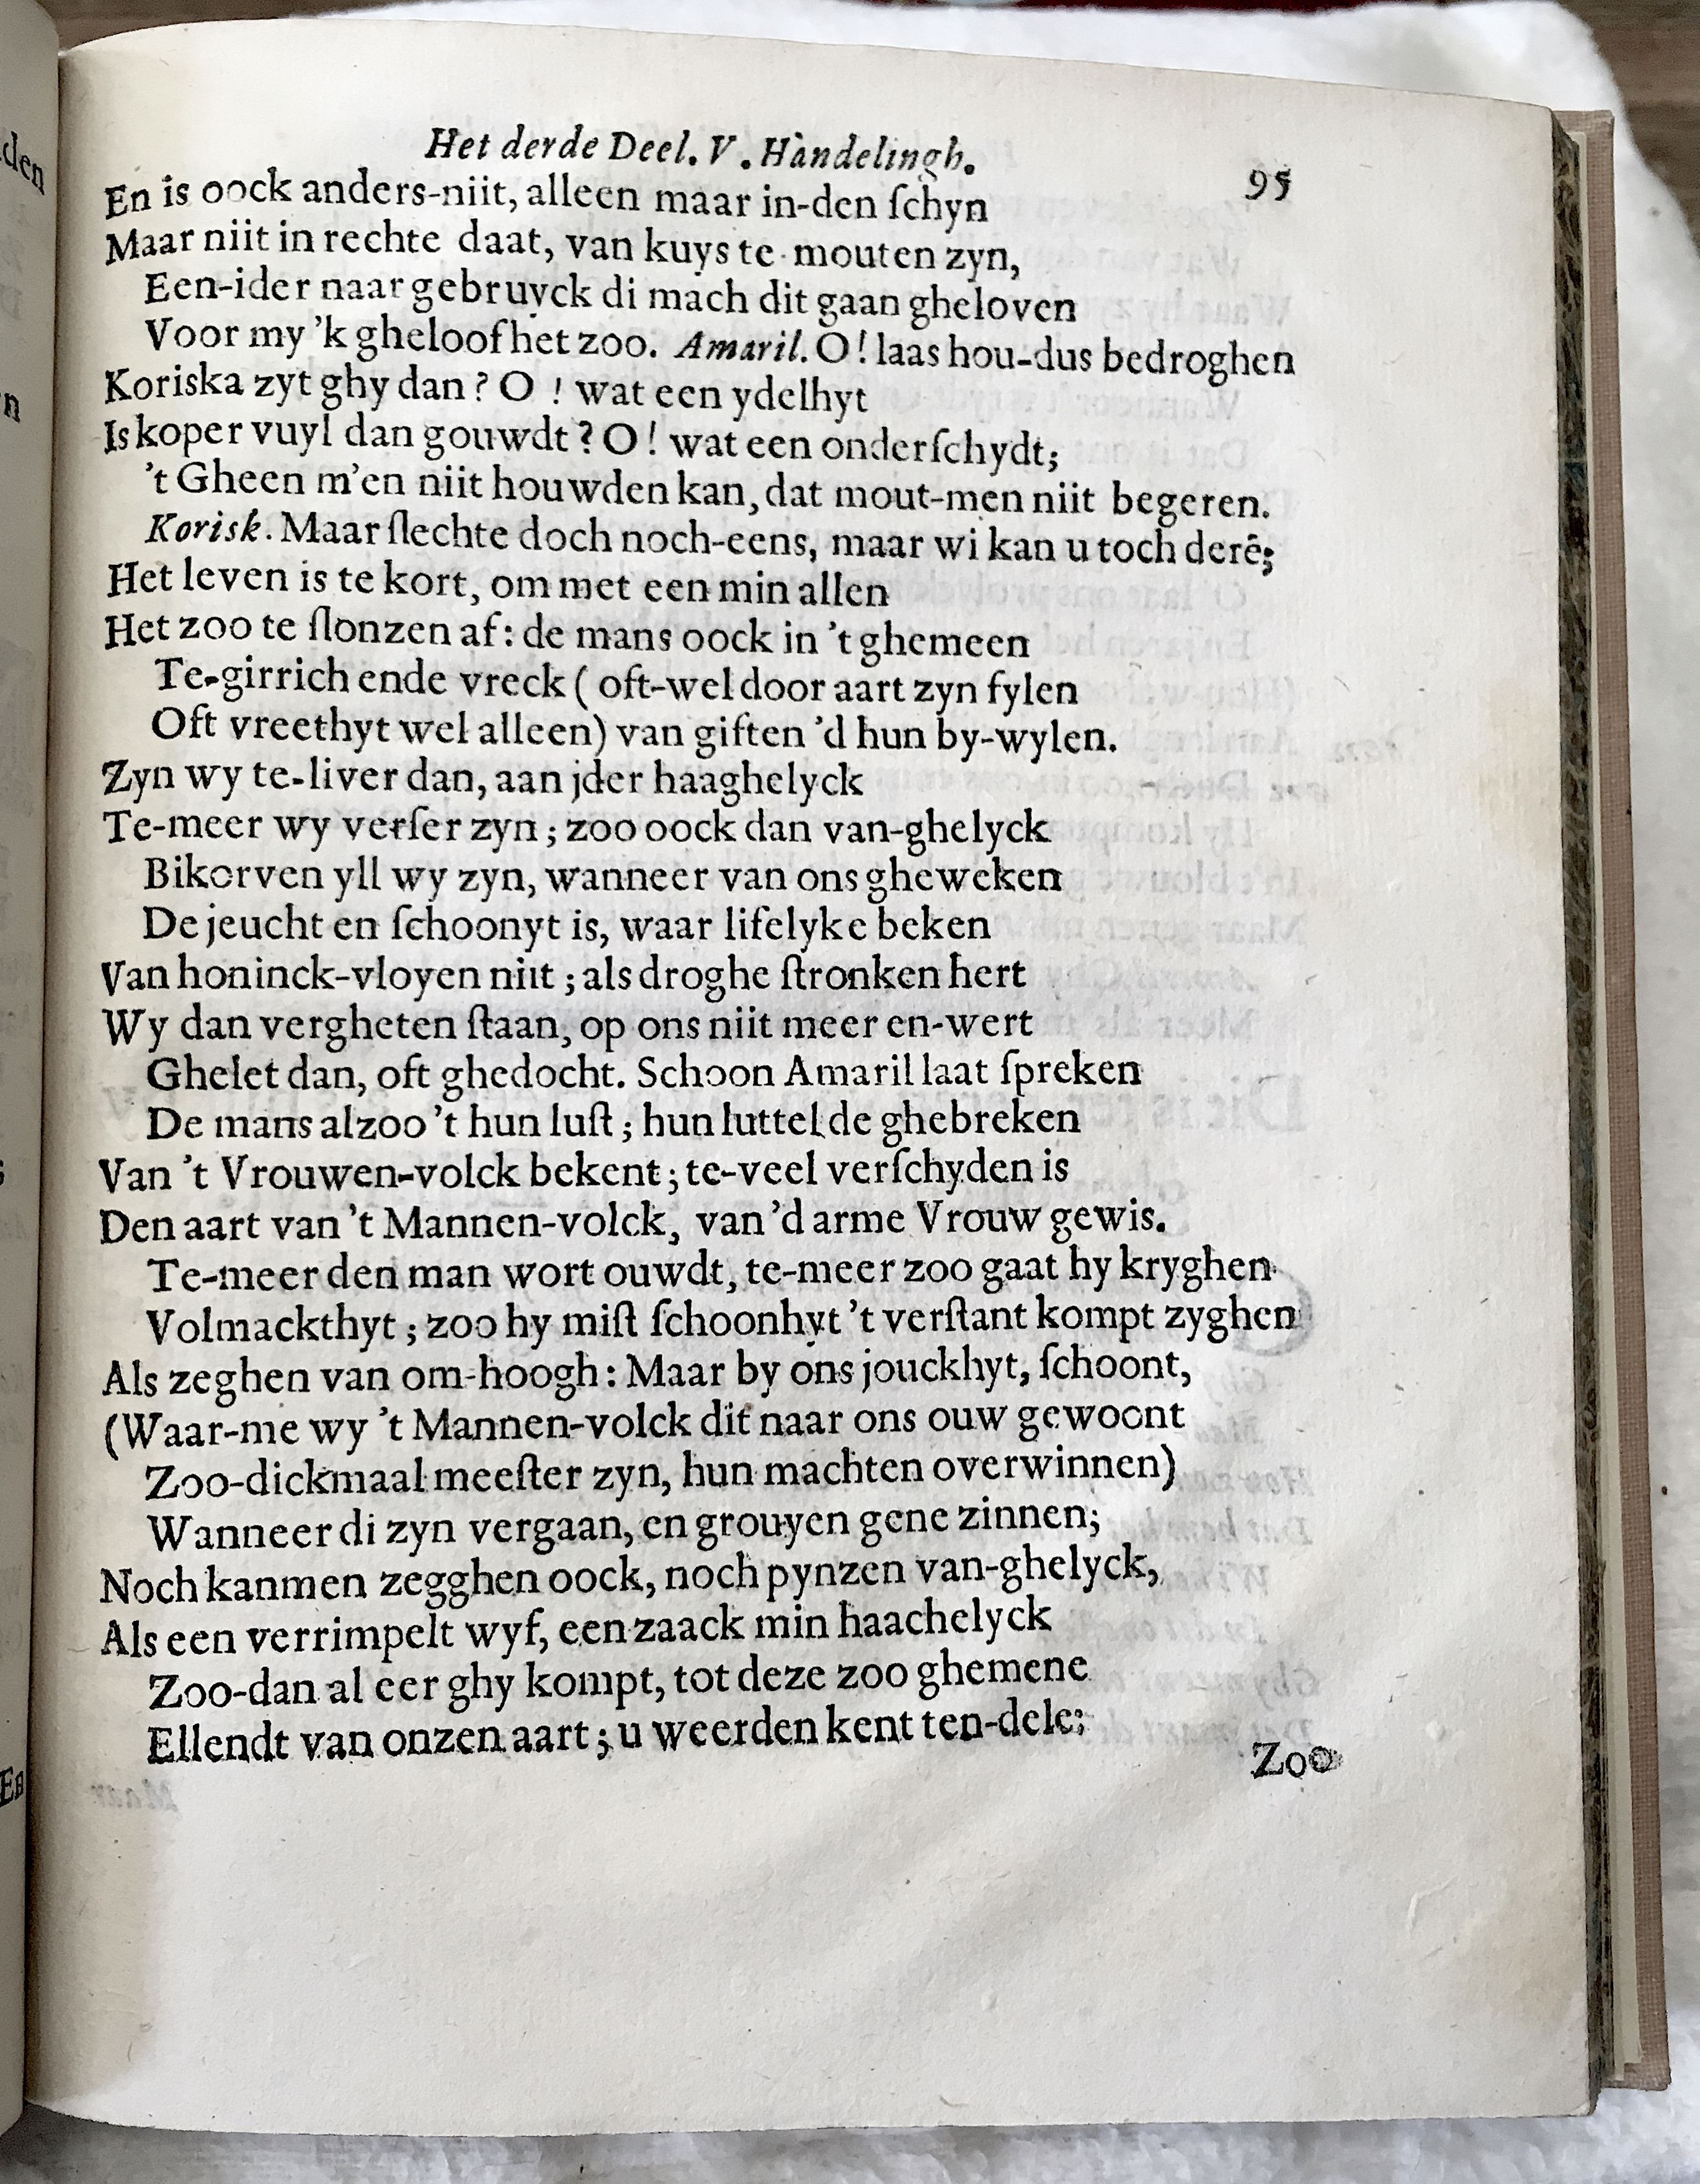 Het derde Deel. V. Handelingh. 95
En is oock anders-niit, alleen maar in-den ſchyn
Maar niit in rechte daat, van kuys te mouten zyn,
Een-ider naar gebruyck di mach dit gaan gheloven
Voor my 'k gheloof het zoo. Amaril. O! laas hou-dus bedroghen
Koriska zyt ghy dan? O! wat een ydelhyt
Is koper vuyl dan gouwdt? O! wat een onderſchydt;
't Gheen m'en niit houwden kan, dat mout-men niit begeren.
Korisk. Maar ſlechte doch noch-eens, maar wi kan u toch derē;
Het leven is te kort, om met een min allen
Het zoo te ſlonzen af: de mans oock in 't ghemeen
Te-girrich ende vreck (oft-wel door aart zyn fylen
Oft vreethyt wel alleen) van giften 'd hun by-wylen.
Zyn wy te-liver dan, aan jder haaghelyck
Te-meer wy verſer zyn; zoo oock dan van-ghelyck
Bikorven yll wy zyn, wanneer van ons gheweken
De jeucht en ſchoonyt is, waar lifelyke beken
Van honinck-vloyen niit; als droghe ſtronken hert
Wy dan vergheten ſtaan, op ons niit meer en-wert
Ghelet dan, oft ghedocht. Schoon Amaril laat ſpreken
De mans alzoo 't hun luſt; hun luttel de ghebreken
Van 't Vrouwen-volck bekent; te-veel verſchyden is
Den aart van 't Mannen-volck, van 'd arme Vrouw gewis.
Te-meer den man wort ouwdt, te-meer zoo gaat hy kryghen
Volmackthyt; zoo hy miſt ſchoonhyt 't verſtant kompt zyghen
Als zeghen van om-hoogh: Maar by ons jouckhyt, ſchoont,
(Waar-me wy 't Mannen-volck dit naar ons ouw gewoont
Zoo-dickmaal meeſter zyn, hun machten overwinnen)
Wanneer di zyn vergaan, en grouyen gene zinnen;
Noch kanmen zegghen oock, noch pynzen van-ghelyck,
Als een verrimpelt wyf, een zaack min haachelyck
Zoo-dan al eer ghy kompt, tot deze zoo ghemene
Ellendt van onzen aart; u weerden kent ten-dele;
Zoo